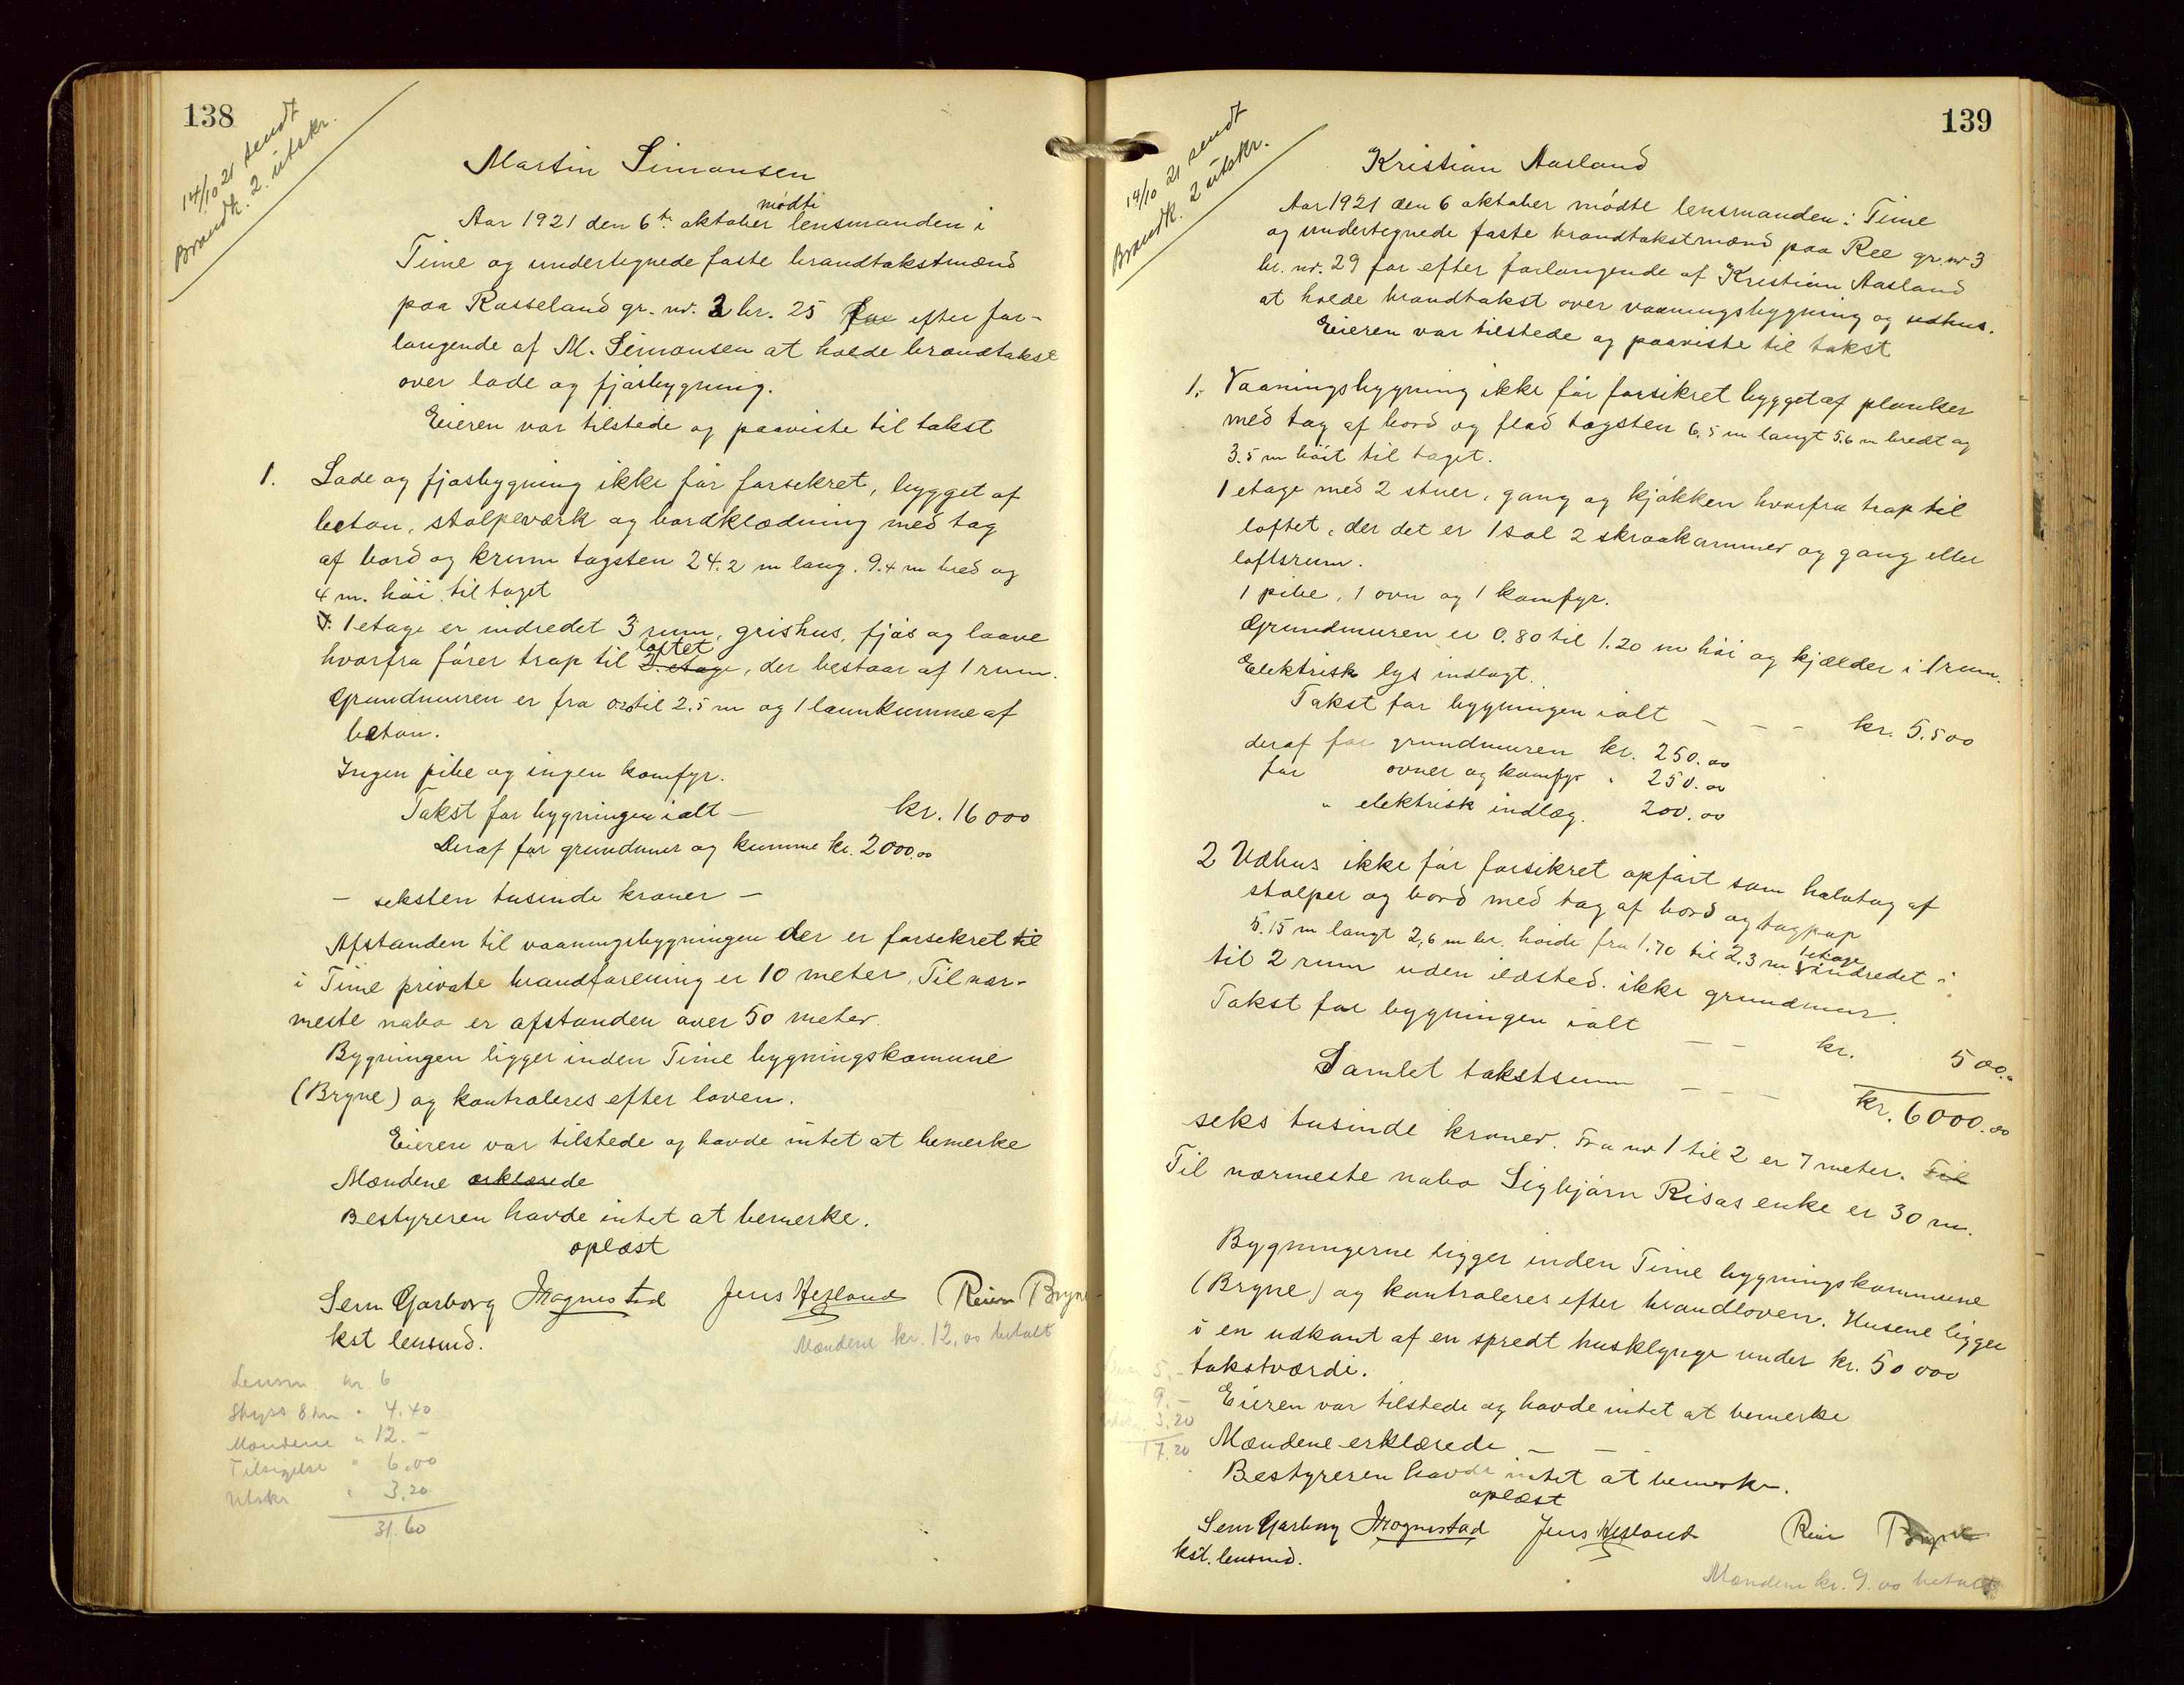 138
14/10 21 sendt
Brandk. 2. utskr.
Martin Simonsen
mødte
Aar 1921 den 6te oktober lensmanden i
Time og undertegnede faste brandtakstmænd
paa Rosseland gr. nr. 2 br. 25 for efter for-
langende af M. Simonsen at holde brandtakst
over lade og fjøsbygning.
Eieren var tilstede og paaviste til takst
1. Lade og fjøsbygning ikke før forsikret, bygget af
beton, stolpeværk og bordklædning med tag
af bord og krum tagsten 24.2 m lang. 9.4 m bred og
4 m. høi til taget
I. 1 etage er indredet 3 rum, grishus, fjøs og laave
loftet
hvorfra fører trap til 2. etage, der bestaar af 1 rum.
Grundmuren er fra 0.20 til 2.5 m og 1 lannkumme af
beton.
Ingen pibe og ingen komfyr.
Takst for bygningen ialt — kr. 16000
Deraf for grundmur og kumme kr. 2000.00
— seksten tusinde kroner —
Afstanden til vaaningsbygningen der er forsikret til
i Time private brandforening er 10 meter. Til nær-
meste nabo er afstanden over 50 meter.
Bygningen ligger inden Time bygningskomune
(Bryne) og kontroleres efter loven.
Eieren var tilstede og havde intet at bemerke
Mændene erklærede
Bestyreren havde intet at bemerke.
oplæst
Sem Garborg Jens Hesland Reier Bryne
kst lensmd.
Mændene kr. 12,00 betalt
Lensm. kr. 6
Skyss 8 km " 4.40
Mændene " 12.-
Tilsigelse " 6.00
Utskr. " 3.20
31.60
139
14/10 21 sendt
Brandk. 2 utskr.
Kristian Aasland
Aar 1921 den 6 oktober mødte lensmanden i Time
og undertegnede faste brandtakstmænd paa Ree gr. nr 3
br. nr. 29 for efter forlangende af Kristian Aasland
at holde brandtakst over vaaningsbygning og udhus.
Eieren var tilstede og paaviste til takst
1. Vaaningsbygning ikke før forsikret bygget af planker
med tag af bord og flad tagsten 6,5 m langt 5.6 m bredt og
3.5 m høit til taget.
1 etage med 2 stuer, gang og kjøkken hvorfra trap til
loftet, der det er 1 sal 2 skraakammer og gang eller
loftsrum.
1 pibe, 1 ovn og 1 komfyr.
Grundmuren er 0.80 til 1.20 m høi og kjælder i 1 rum.
Elektrisk lys indlagt.
Takst for bygningen ialt — — — kr. 5.500
deraf for grundmuren kr. 250.00
for ovner og komfyr " 250.00
" elektrisk indlæg. 200.00
2 Udhus ikke før forsikret opført som halvtag af
stolper og bord med tag af bord og tagpap
5.15 m langt 2,6 m br. høide fra 1.70 til 2.3 m 1 etage indredet i
til 2 rum uden ildsted. ikke grundmur.
Takst for bygningen ialt — — kr. 500.
Samlet takstsum — — — kr. 6000.00
seks tusinde kroner. Fra nr 1 til 2 er 7 meter. Til
Til nærmeste nabo Sigbjørn Risas enke er 30 m.
Bygningerne ligger inden Time bygningskommune
(Bryne) og kontroleres efter brandloven. Husene ligger
i en udkant af en spredt husklynge under kr. 50000
takstværdi.
Eieren var tilstede og havde intet at bemerke
Mændene erklærede — —
Bestyreren havde intet at bemerke.
oplæst
Sem Garborg Jens Hesland Reier Bryne
kst. lensmd.
5.-
9.-
3.20
17.20
Mændene kr. 9.00 betalt